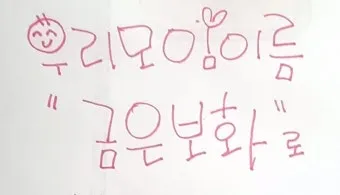 우리모임이름
"금은보화"로